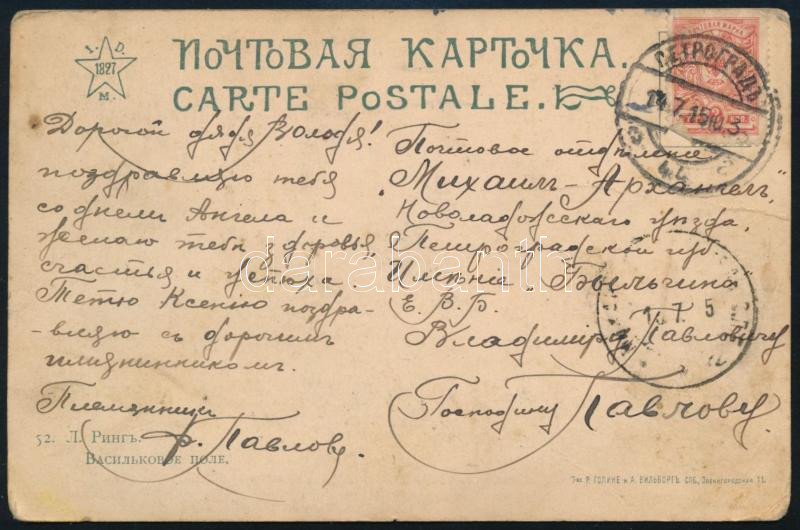 I. D.
1827
M.
ПОЧТОВАЯ КАРТОЧКА.
CARTE POSTALE.
ПЕТРОГРАДЪ
14.7.15
Дорогой дядя Володя!
поздравляю тебя
со днем Ангела и
желаю тебе здоровья,
счастья и успѣха.
Тетю Ксенію поздра-
-вляю съ дорогим
имянинником.
Племянник
Ѳ. Павловъ.
Почтовое отдѣленіе
„Михаилъ-Архангелъ"
Новоладожскаго уѣзда,
Петроградской губ.
Имѣніе „Быльчино"
Е. В. Б.
Владиміру Павловичу
Господину Павлову.
52. Л. Рингъ.
Васильковое поле.
Тип. Р. ГОЛИКЕ и А. ВИЛЬБОРГЪ. СПБ., Звенигородская 11.
darabanth